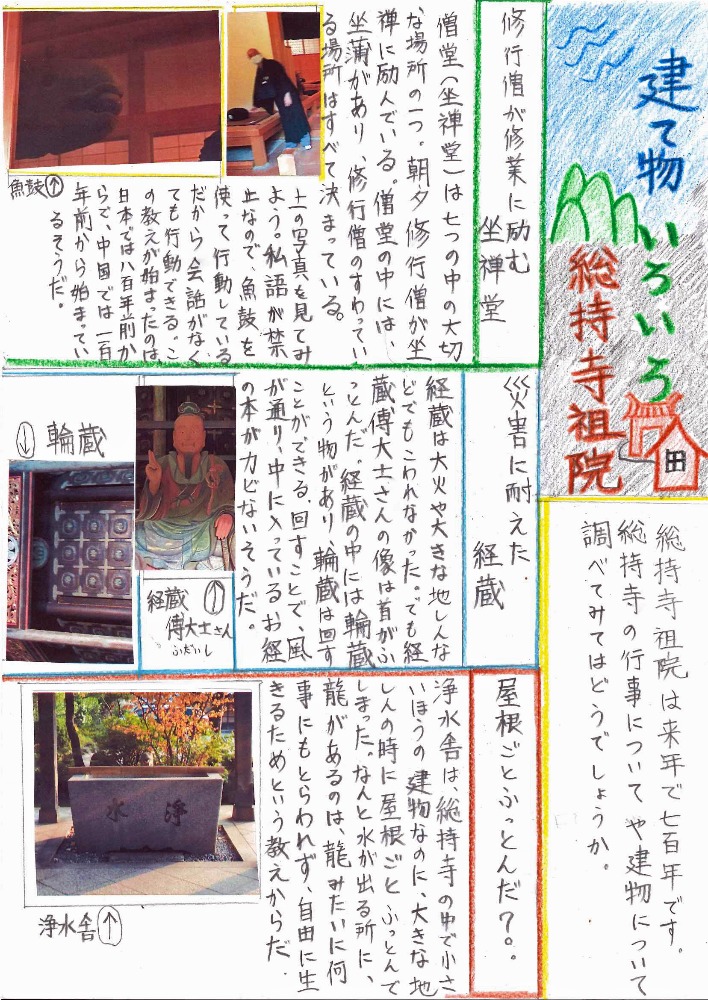 建て物いろいろ
総持寺祖院
総持寺祖院は来年で七百年です。
総持寺の行事についてや建物について
調べてみてはどうでしょうか。
修行僧が修業に励む
坐禅堂
僧堂(坐禅堂)は七つの中の大切
な場所の一つ。朝夕修行僧が坐
禅に励んでいる。僧堂の中には、
坐蒲があり、修行僧のすわってい
る場所はすべて決まっている。
上の写真を見てみ
よう。私語が禁
止なので、魚鼓を
使って行動している
だから会話がなく
ても行動できる。こ
の教えが始まったのは、
日本では八百年前か
らで、中国では一百
年前から始まってい
るそうだ。
魚鼓↑
災害に耐えた
経蔵
経蔵は大火や大きな地しんな
どでもこわれなかった。でも経
蔵、傅大士さんの像は首がふ
っとんだ。経蔵の中には輪蔵
という物があり、輪蔵は回す
ことができる。回すことで、風
が通り、中に入っているお経
の本がカビないそうだ。
経蔵↑
傅大士さん
ふだいし
輪蔵↓
屋根ごとふっとんだ?。
浄水舎は、総持寺の中で小さ
いほうの建物なのに、大きな地
しんの時に屋根ごとふっとんで
しまった。なんと水が出る所に、
龍があるのは、龍みたいに何
事にもとらわれず、自由に生
きるためという教えからだ.
浄水
浄水舎↑